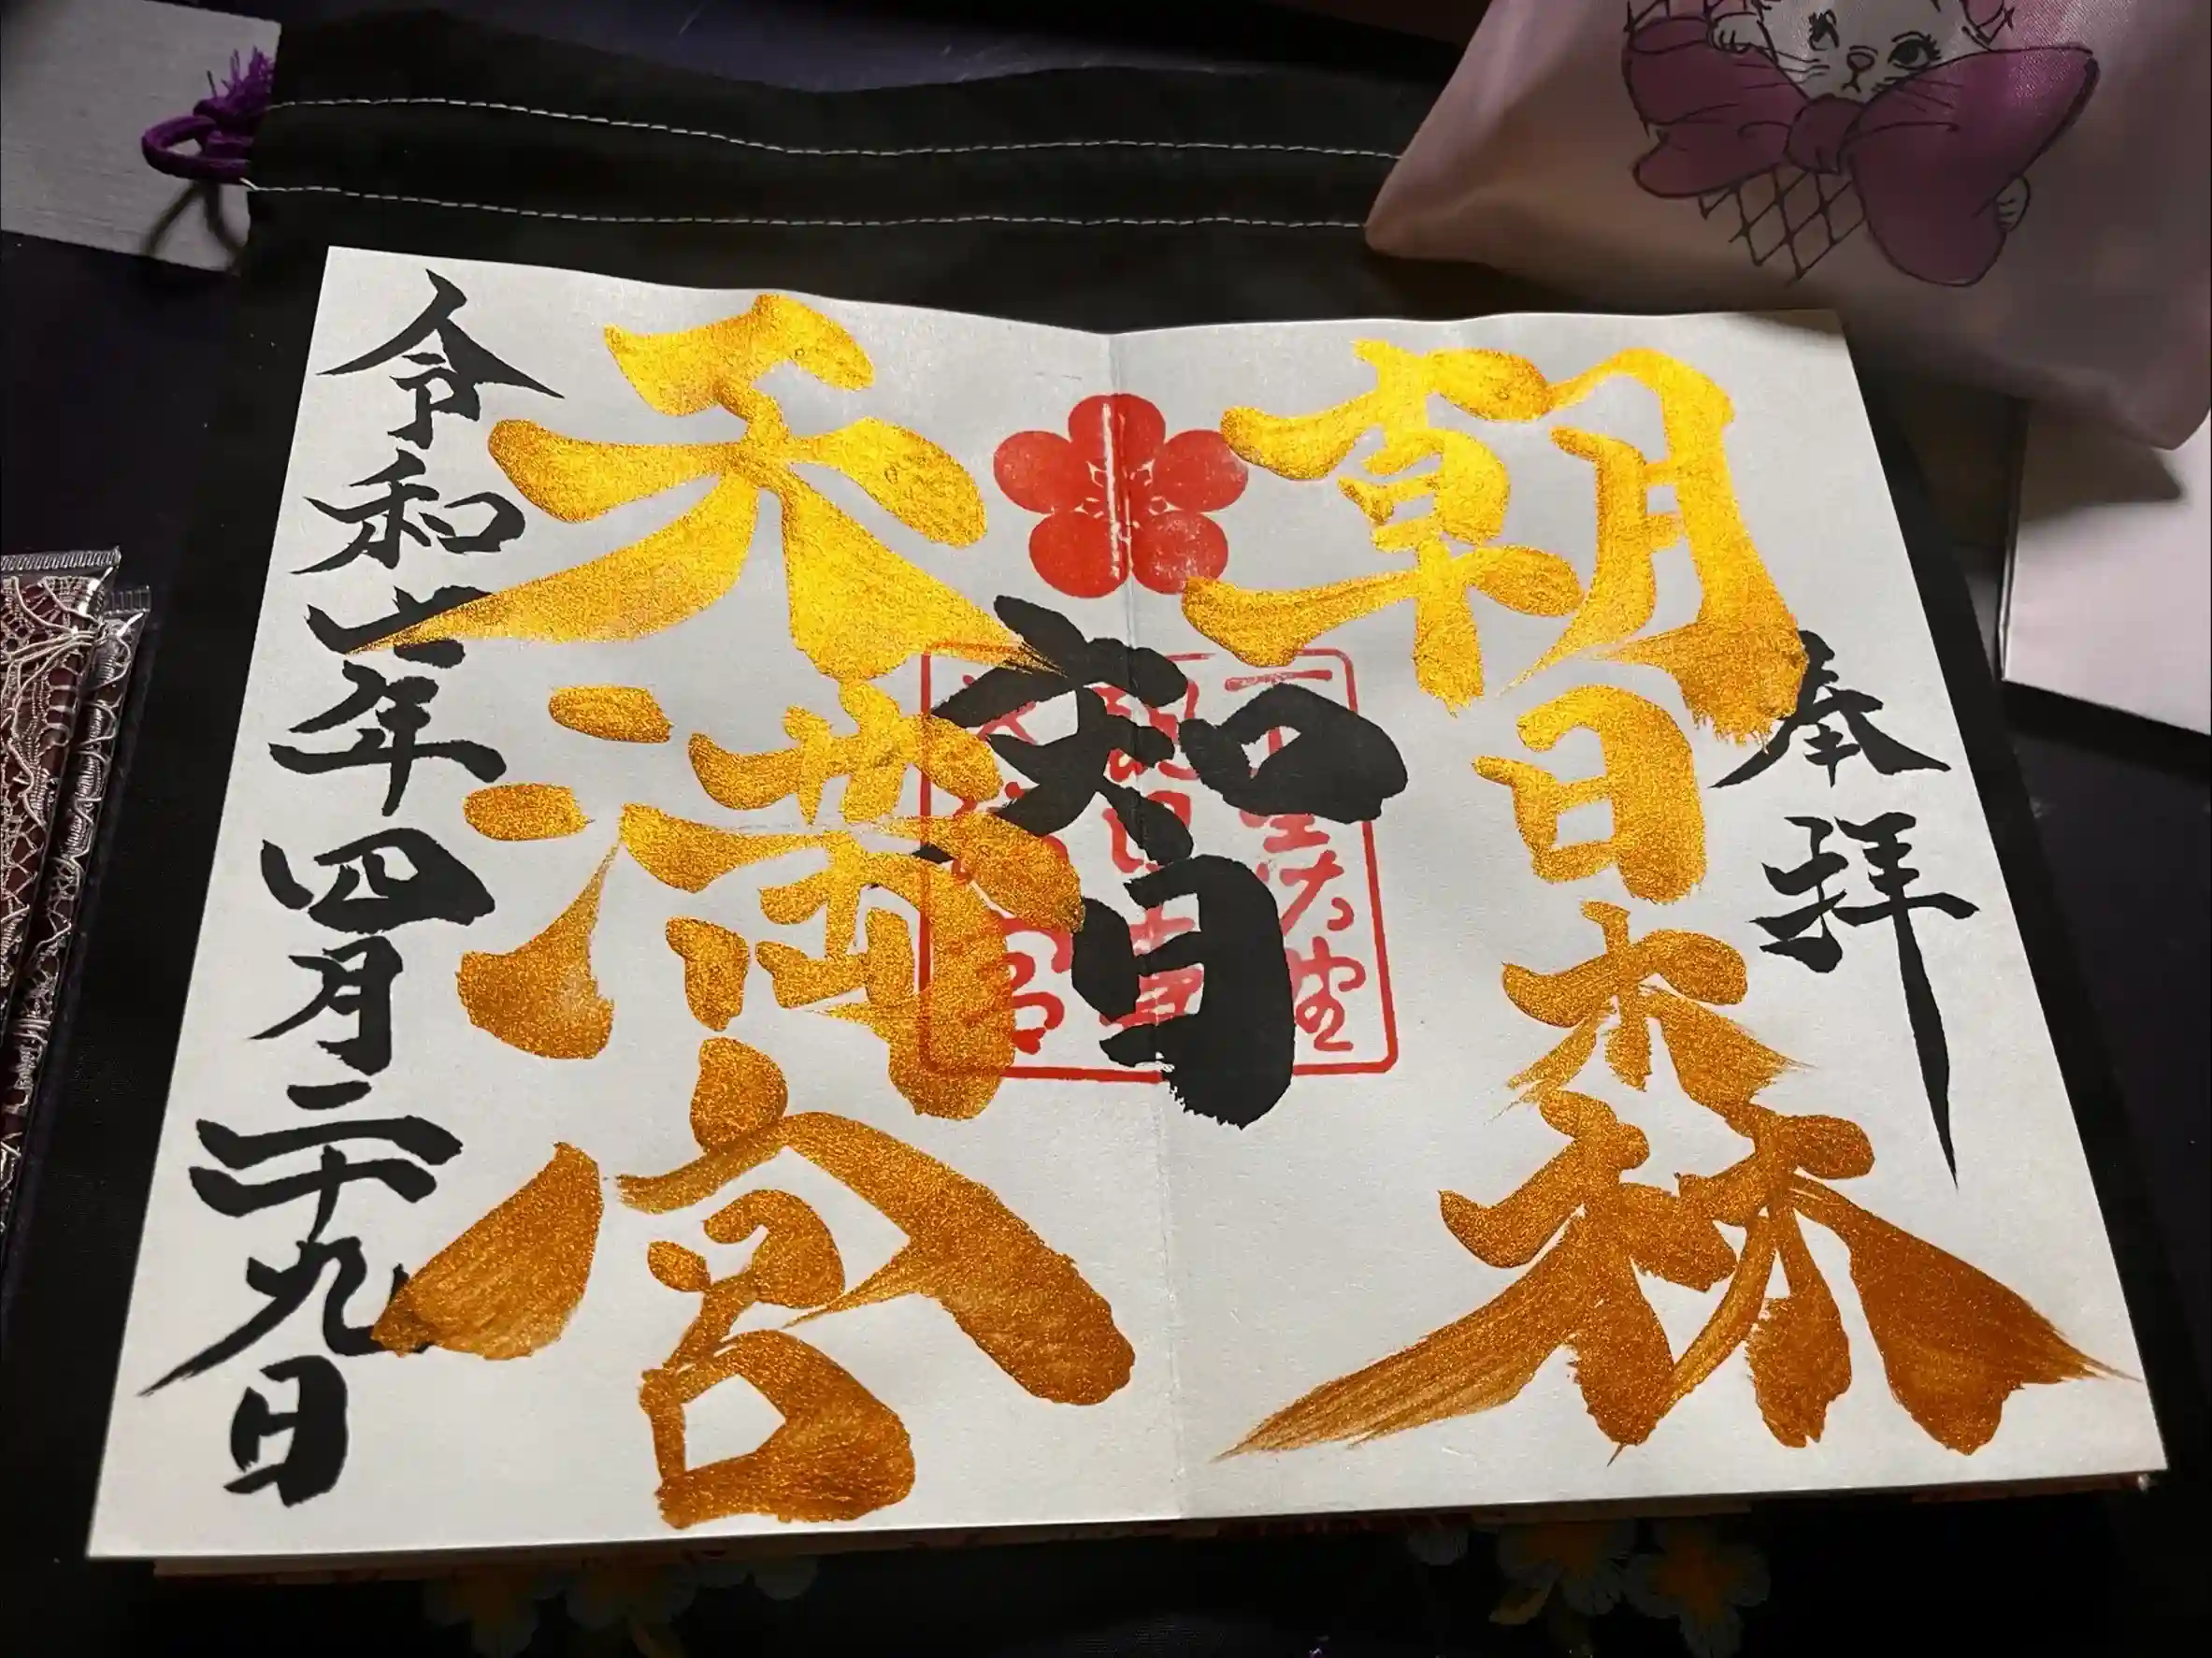 奉拝
朝日森
智
天満宮
令和年四月二十九日